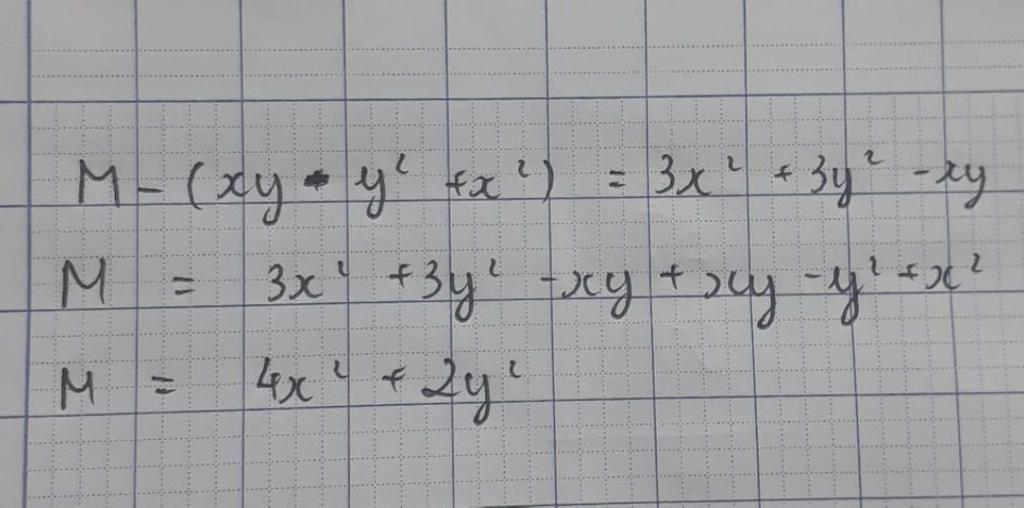 M - (xy - y² + x²) = 3x² + 3y² - xy
M = 3x² + 3y² - xy + xy - y² + x²
M = 4x² + 2y²